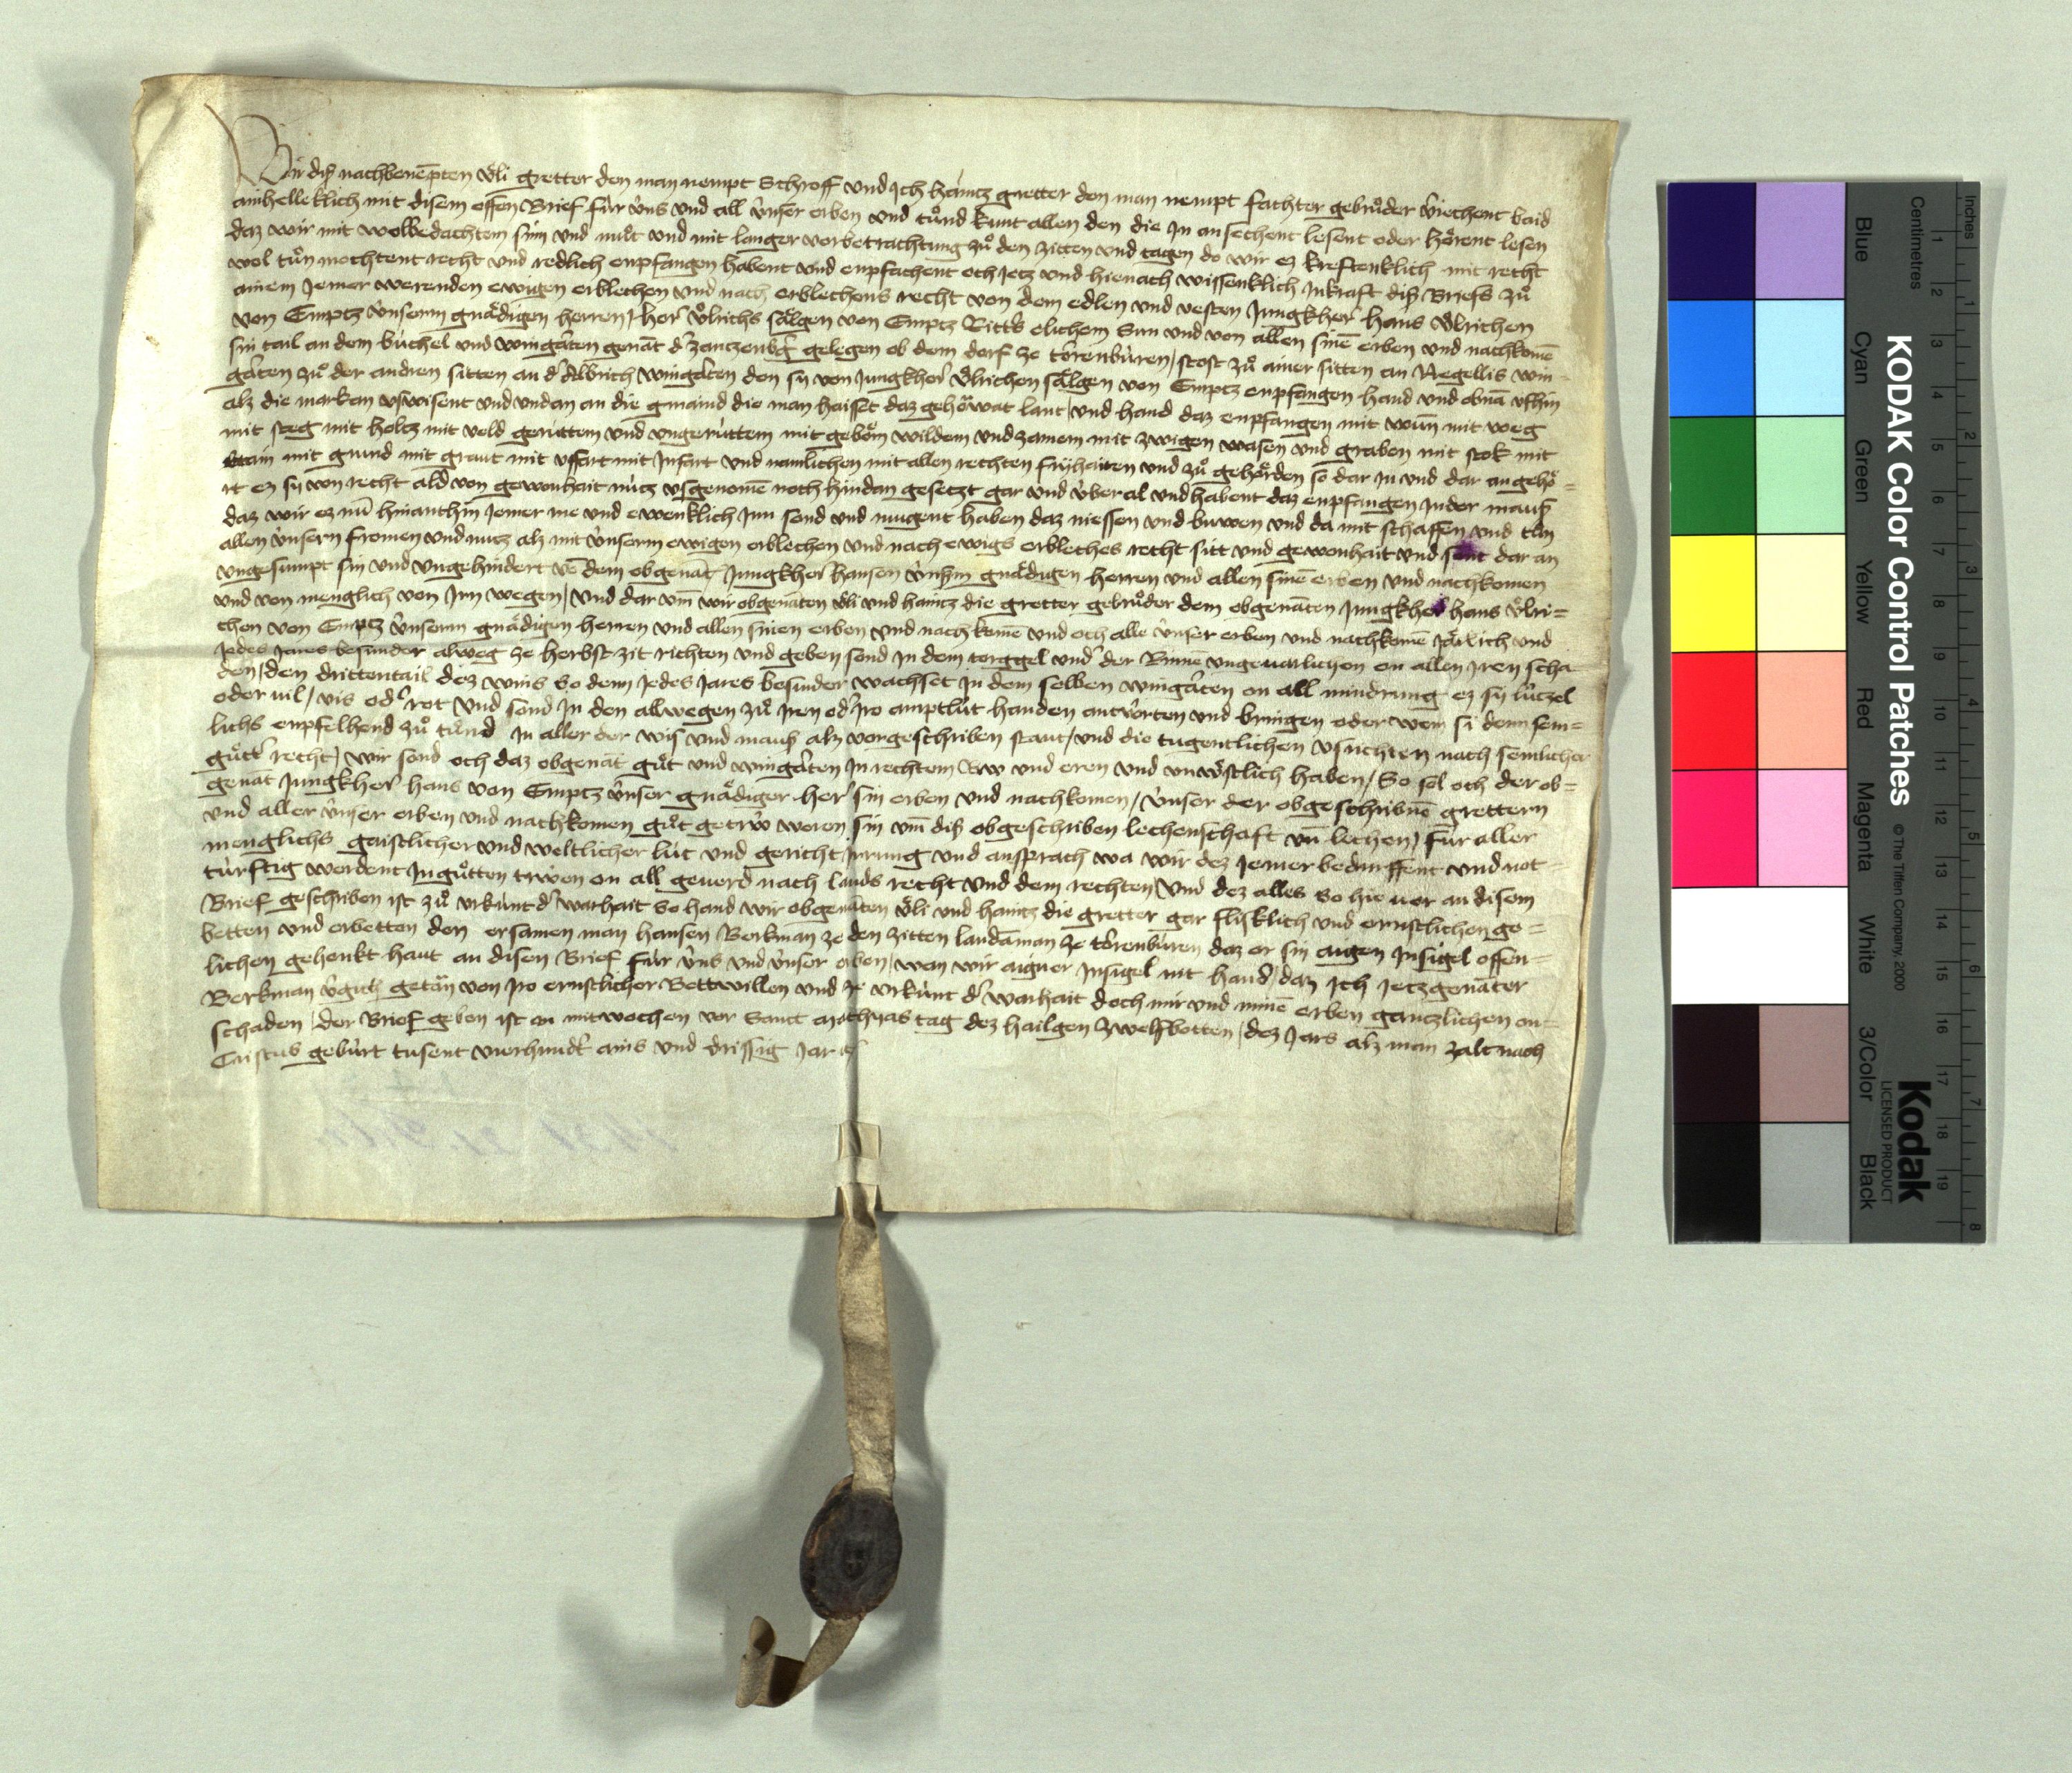 Wir diß nachbenempten Ůli gretter den man nempt Schroff und Ich haintz gretter den man nempt fachter gebrůder veriechent baid
ainhelleklich mit disem offen Brief für üns und all ünser erben und tůnd kunt allen den die In an sechent lesent oder hörent lesen
daz wir mit wolbedachtem sinn und můt und mit langer vorbetrachtung zů den zitten und tagen do wir ez kreftenklich mit recht
wol tůn mochtent recht und redlich enpfangen habent und enpfachent och Jetz und hienach wissenklich Inkraft diß Briefs zů
ainem Jemer werenden ewigen erblechen und nach erblechens recht von dem edlen und vesten Jungkher hans Ůlrichen
von Emptz ünserm gnädigen herren her Ůlrichs sälgen von Emptz Ritters elichem Sun und von allen sinē erben und nachkomē
sin tail an dem büchel und wingarten genāt d' zanzenb'g gelegen ob dem dorf ze torenbüren / stost zů ainer sitten an Aegellis win-
garten zů der andren sitten an d' Albrich wingarten den sy von Jungkher Ůlrichen sälgen von Emptz enpfangen hand und obnā ufhin
alz die markan uswisent und undan an die gmaind die man haisset daz gehöwat lant / und hand daz enpfangen mit wun̄ mit weg
mit steg mit holtz mit veld gerüttem und ungerüttem mit geböm wildem und zamem mit zwigen wasen und graben mit stok mit
stain mit grund mit grant mit uffart mit Infart und namlichen mit allen rechten fryhaiten und zů gehörden so dar In und dar an gehö-
rt ez sy von recht ald von gewonhait nütz usgenomē noch hindan gesetzt gar und über al und habent daz enpfangen In der mauß
daz wir ez nū hinanthin Jemer me und ewenklich Inn sond und mugent haben daz niessen und buwen und da mit schaffen und tůn
allen ünsern fromen und nutz alz mit ünserm ewigen erblechen und nach ewigs erbleches recht sitt und gewonhait und sont dar an
ungesumpt sin und ungehindert vō dem obgenāt Jungkher hansen ünserm gnädigen herren und allen sinē erben und nachkomen
und von menglich von Irn wegen / und dar um̄ wir obgenāten Ůli und haintz die gretter gebrůder dem obgenāten Jungkher hans Ůlri-
chen von Emptz ünserm gnädigen herren und allen sinen erben und nachkomē und och alle ünser erben und nachkomē Järlich und
Jedes Jares besunder alweg ze herbst zit richten und geben sond In dem torggel und' der Rinnē ungeuarlichen on allen Iren scha
den / den drittentail dez wins so denn Jedes Jares besunder wachset In dem selben wingarten on all mindrung ez sy lützel
oder uil / wis od' rot und sond In den allwegen zů Iren od' Iro amptlüt handen antwürten und bringen oder wem si denn sem-
lichs enpfelhend zů tůnd In aller der wis und mauß alz vorgeschriben staut / und die tugentlichen usrichten nach semlicher
gůt' recht / wir sond och daz obgenāt gůt und wingarten In rechtem buw und eren und unwüstlich haben / So sol och der ob-
genāt Jungkher hans von Emptz ünser gnädiger her sin erben und nachkomen / ünser der obgeschribnē grettern
und aller ünser erben und nachkomen gůt getrüw weren sin um̄ diß obgeschriben lechenschaft un̄ lechen / für aller
menglichs gaistlicher und weltlicher lüt und gericht Irrung und ansprach wa wir dez Jemer bedurffent und not-
türftig werdent In gůtten trwen on all geuerd nach lands recht und dem rechten / Und dez alles so hie uor an disem
Brief geschriben ist zů urkünt d' warhait so hand wir obgenāten Ůli und haintz die gretter gar flißklich und ernstlichen ge-
betten und erbetten den ersamen man hansen Berkman ze den zitten landāman ze torenbüren daz er sin aigen Insigel offen-
lichen gehenkt haut an disen Brief für üns und ünser erben / wan wir aigner Insigel nit hand / daz Ich Jetzgenāter
Berkman vergich getān von Iro ernstlicher Bettwillen und ze urkünt d' warhait doch mir und minē erben gantzlichen on-
schaden / der Brief geben ist an mitwochen vor Sanct mathyas tag dez hailgen zwelfbotten / dez Jars alz man zalt nach
Cristus gebürt tusent vierhundert ains und drissig Jar
KODAK Color Control Patches © The Tiffen Company, 2000
Kodak
LICENSED PRODUCT
Inches
Centimetres
1 2 3 4 5 6 7 8
1 2 3 4 5 6 7 8 9 10 11 12 13 14 15 16 17 18 19
Blue Cyan Green Yellow Red Magenta White 3/Color Black